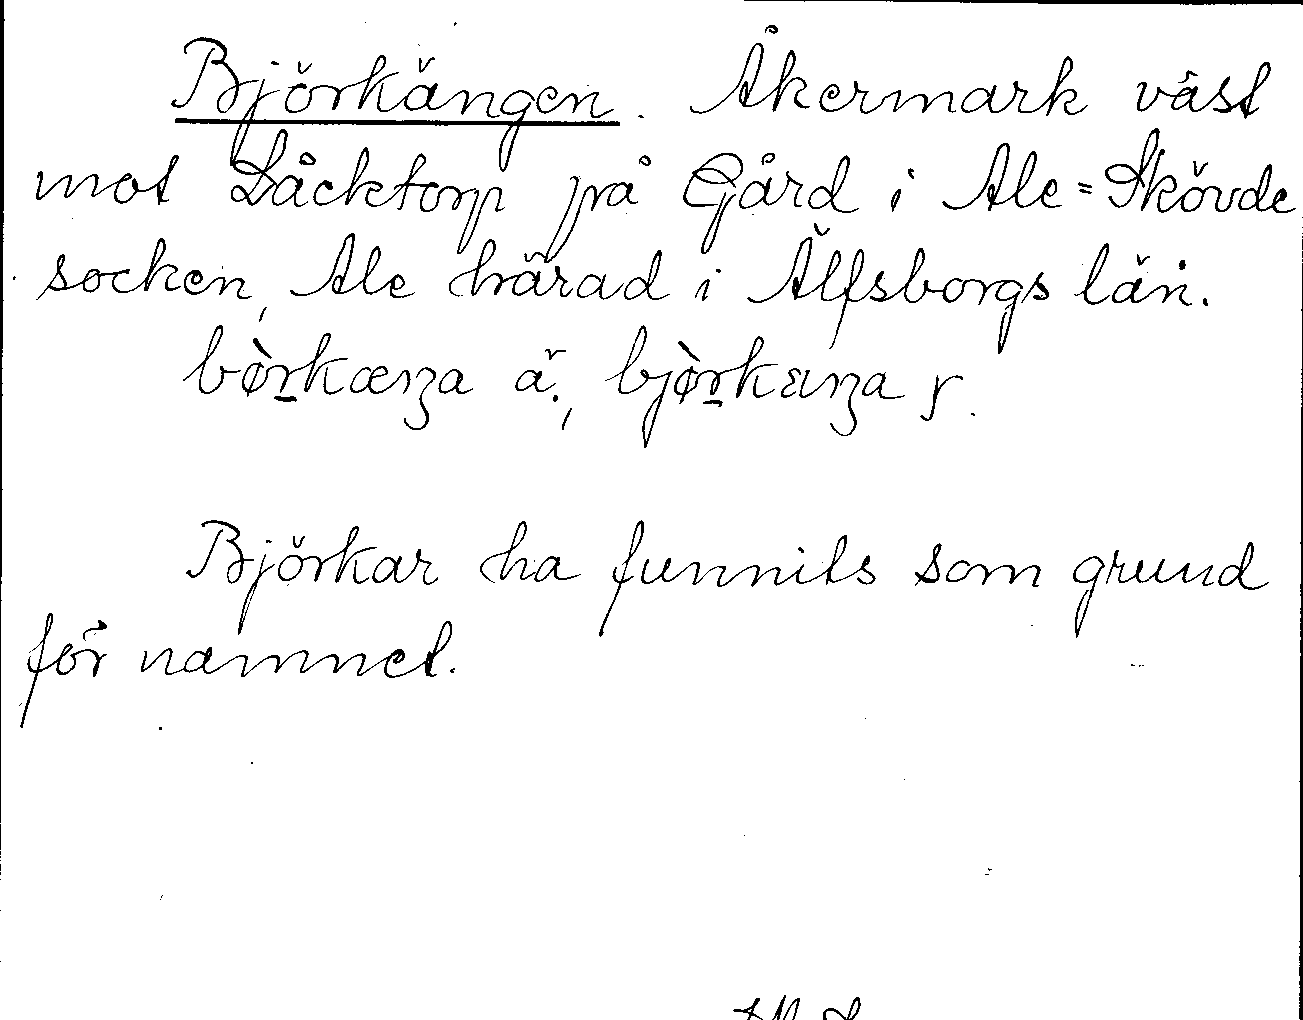 Björkängen. Åkermark väst
mot Låcktorp på Gård i Ale=Skövde
socken, Ale härad i Älfsborgs län.
bὸrkæŋa ä., bjὸrkæŋa y.
Björkar ha funnits som grund
för namnet.